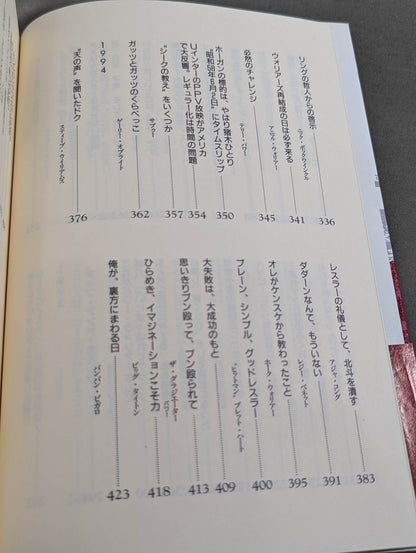 リングの哲人からの啓示
ニック・ボックウィンクル
336
ウォリアーズ再結成の日は必ず来る
アニマル・ウォリアー
341
必然のチャレンジ
テリー・パワー
345
ホーガンの標的は、やはり猪木ひとり
"昭和58年6月2日"にタイムスリップ
350
UインターのPPV放映がアメリカ
で大反響。レギュラー化は時間の問題
354
"シークの教え"をいくつか
サブゥー
357
ガッツとガッツのくらべっこ
ゲーリー・オブライト
362
1994
"天の声"を聞いたドク
スティーブ・ウイリアムス
376
レスラーの礼儀として、北斗を潰す
アジャ・コング
383
ダダーンなんて、もういない
レジー・ベネット
391
オレがケンスケから教わったこと
ホーク・ウォリアー
395
プレーン、シンプル、グッドレスラー
ヒットマン ブレット・ハート
400
大失敗は、大成功のもと
409
思いきりブン殴って、ブン殴られて
ザ・グラジエーター
413
ひらめき、イマジネーションこそ力
パワー
ビッグ・タイトン
418
俺が、裏方にまわる日
バンバン・ビガロ
423